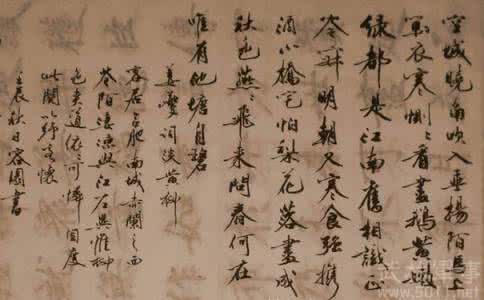 空城曉角吹入垂揚陌馬上
單衣寒惻々看盡鵝黃嫩
綠都是江南舊相識正
岑寂明朝又寒食強攜
酒小橋宅怕梨花落盡成
秋色燕々飛來問春何在
唯有池塘自碧
姜夔詞淡黃柳
客居合肥南城赤闌之西
巷陌淒涼與江左異惟柳
色夾道依々可憐因度
此闋以紓客懷
壬辰秋日容園書